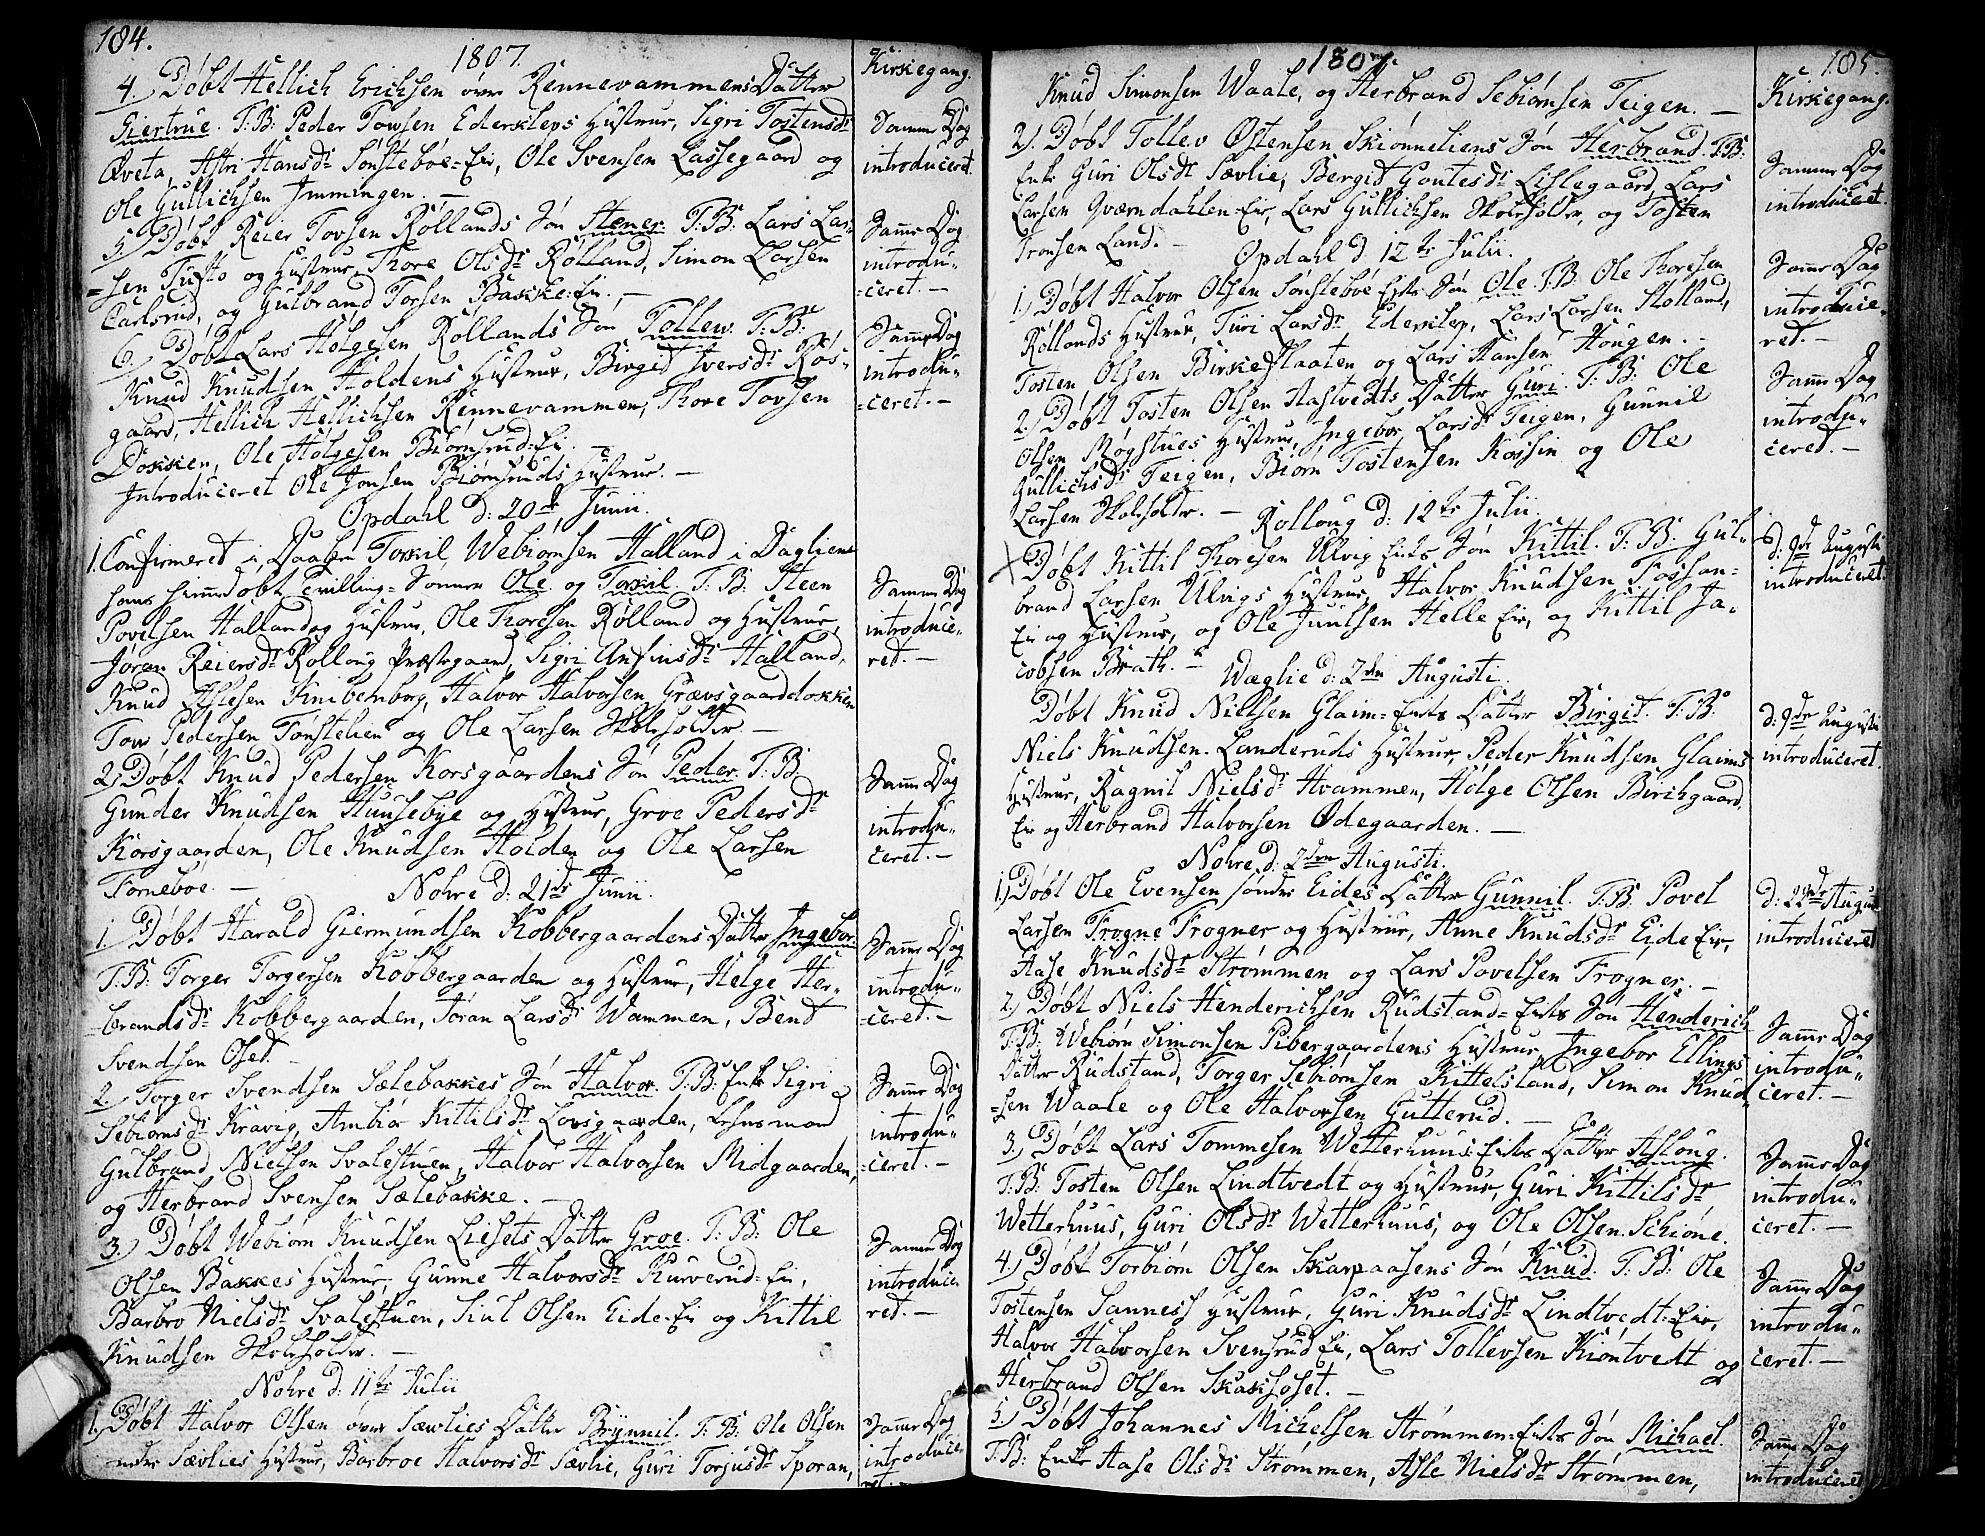 184.
1807.
Kirkegang.
4. Døbt Hellich Erichsen över Rennevammens Datter
Giertrue. T: B: Peder Towsen Ederkleps Hustrue, Sigri Tostensdr
Qveta, Astri Hansdr Sønstebøe-Eie, Ole Svensen Lassegaard og
Ole Gullichsen Jmmingen. —
Samme Dag
introduceret
5. Døbt Reier Tovsen Rollands Søn Stener. T: B: Lars Lar-
=sen Tufto og Hustrue, Thore Olsdr Rolland, Simon Larsen
Carlsrud, og Gulbrand Torsen Bakke-Eie. —
Samme Dag
introdu-
=ceret. —
6. Døbt Lars Holgesen Rollands Søn Tollew. T: B:
Knud Knudsen Holdens Hustrue, Birgid Iversdr Ros-
gaard, Hellich Hellichsen Rennevammen, Thore Tovsen
Dokken, Ole Holgesen Biørnsrud-Eie. —
Introduceret Ole Jonsen Biørnsruds Hustrue. —
Samme Dag
introdu-
=ceret. —
Opdahl d: 20de Junii.
1. Confirmeret i Daaben Torkil Webiørnsen Halland i Dagliens
hans hiemmedøbt Tvilling-Sønner Ole og Torkil. T: B: Steen
Povelsen Halland og Hustrue, Ole Thoresen Rolland og Hustrue,
Jøran Reiersdr Rolloug Præstegaard, Sigri Anfinsdr Halland,
Knud Aslesen Knibenborg, Halvor Halvorsen Grævsgaarddokken
Tow Pedersen Tønstelien og Ole Larsen Skoleholder. —
Samme Dag
introduce-
ret. —
2. Døbt Knud Pedersen Korsgaardens Søn Peder. T: B:
Gunder Knudsen Huusebye og Hustrue, Groe Pedersdr
Korsgaarden, Ole Knudsen Holden og Ole Larsen
Fornebøe. —
Samme Dag
introdu-
ceret. —
Nohre d: 21de Junii.
1. Døbt Harald Giermundsen Kobbergaardens Datter Ingebor.
T: B: Torger Torgersen Kobbergaarden og Hustrue, Helge Her-
brandsdr Kobbergaarden, Jøran Larsdr Wammen, Bent
Svendsen Oset. —
Samme Dag
introdu-
=ceret. —
2. Torger Svendsen Sælebakkes Søn Halvor. T: B: Enke Sigri
Sebiørnsdr Kravig, Ambiør Kittilsdr Lovsgaarden, Lehnsmand
Gulbrand Nielsen Svalestuen, Halvor Halvorsen Midgaarden,
og Herbrand Svensen Sælebakke. —
Samme Dag
introdu-
=ceret. —
3. Døbt Webiørn Knudsen Liesets Datter Groe. T: B: Ole
Olsen Bakkes Hustrue, Gunne Halvorsdr Kurverud-Eie,
Barbro Nielsdr Svalestuen, Siul Olsen Eide-Eie og Kittil
Knudsen Skoleholder. —
Samme Dag
introduce-
ret. —
Nohre d: 11te Julii
1. Døbt Halvor Olsen över Sævlies Datter Brynnil. T: B: Ole Olsen
neder Sævlies Hustrue, Barbroe Halvorsdr Sævlie, Guri Torjusdr Sporan,
Samme Dag
introduce-
1807.
185.
Kirkegang.
Knud Simonsen Waale, og Herbrand Sebiørnsen Teigen. —
2. Døbt Tollev Østensen Skiønneliens Søn Herbrand. T: B:
Enke Guri Olsdr Sævlie, Bergit Goutesdr Lislegaard, Lars
Larsen Qværndahlen-Eie, Lars Gullichsen Skoleholder, og Tosten
Tronsen Land. —
Samme Dag
introduceret
Opdahl d: 12te Julii.
1. Døbt Halvor Olsen Sønstebøe Eiets Søn Ole. T: B: Ole Thoresen
Rollands Hustrue, Turi Larsdr Ederklep, Lars Larsen Holland,
Tosten Olsen Birkeflaaten og Lars Hansen Hougen. —
Samme Dag
introduce-
ret. —
2. Døbt Tosten Olsen Hastvedts Datter Guri. T: B: Ole
Olsen Møgstues Hustrue, Ingebor Larsdr Teigen, Gunnil
Gullichsdr Teigen, Biørn Tostensen Kossin og Ole
Larsen Skoleholder. —
Samme Dag
introdu-
ceret. —
Rolloug d: 12te Julii.
Døbt Kittil Thoresen Ulvig Eiets Søn Kittil. T: B: Gul-
brand Larsen Ulvigs Hustrue, Halvor Knudsen Fossan-
Eie og Hustrue, og Ole Juulsen Helle Eie, og Kittil Ja-
cobsen Brath. —
d: 9de Augusti
introduceret.
Wæglie d: 2den Augusti.
Døbt Knud Nielsen Glaim-Eiets Datter Birgit. T: B:
Niels Knudsen Landeruds Hustrue, Peder Knudsen Glaims
Hustrue, Ragnil Nielsdr Hvammen, Holge Olsen Birchgaard,
Eie og Herbrand Halvorsen Ødegaarden. —
d: 9de Augusti
introduceret.
Nohre d: 2den Augusti.
1. Døbt Ole Evensen sønder Eides Datter Gunnil. T: B: Povel
Larsen Frogne Frogner og Hustrue, Anne Knudsdr Eide Eie,
Aase Knudsdr Strømmen og Lars Povelsen Frogner. —
d: 22de August
introduceret
2. Døbt Niels Henderichsen Rudstand-Eiets Søn Henderich
T: B: Webiørn Simonsen Pibergaardens Hustrue, Ingebor Ellings
Datter Rudstand, Torger Sebiørnsen Kittelsland, Simon Knud-
=sen Waale og Ole Halvorsen Gutterud. —
Samme Dag
introdu-
=ceret. —
3. Døbt Lars Tommesen Wetterhuus-Eiets Datter Asloug.
T: B: Tosten Olsen Lindtvedt og Hustrue, Guri Kittilsdr
Wetterhuus, Guri Olsdr Wetterhuus, og Ole Olsen Schiøne.
Samme Dag
introdu-
ceret. —
4. Døbt Torbiørn Olsen Skarpaasens Søn Knud. T: B: Ole
Tostensen Sanness Hustrue, Guri Knudsdr Lindtvedt-Eie,
Halvor Halvorsen Svensrud Eie, Lars Tollevsen Kiøntvedt og
Herbrand Olsen Skakshoset. —
Samme Dag
introdu-
ceret. —
5. Døbt Johannes Michelsen Strømmen-Eiets Søn Michael.
T: B: Enke Aase Olsdr Strømmen, Asle Nielsdr Strømmen,
Samme Dag
introduceret